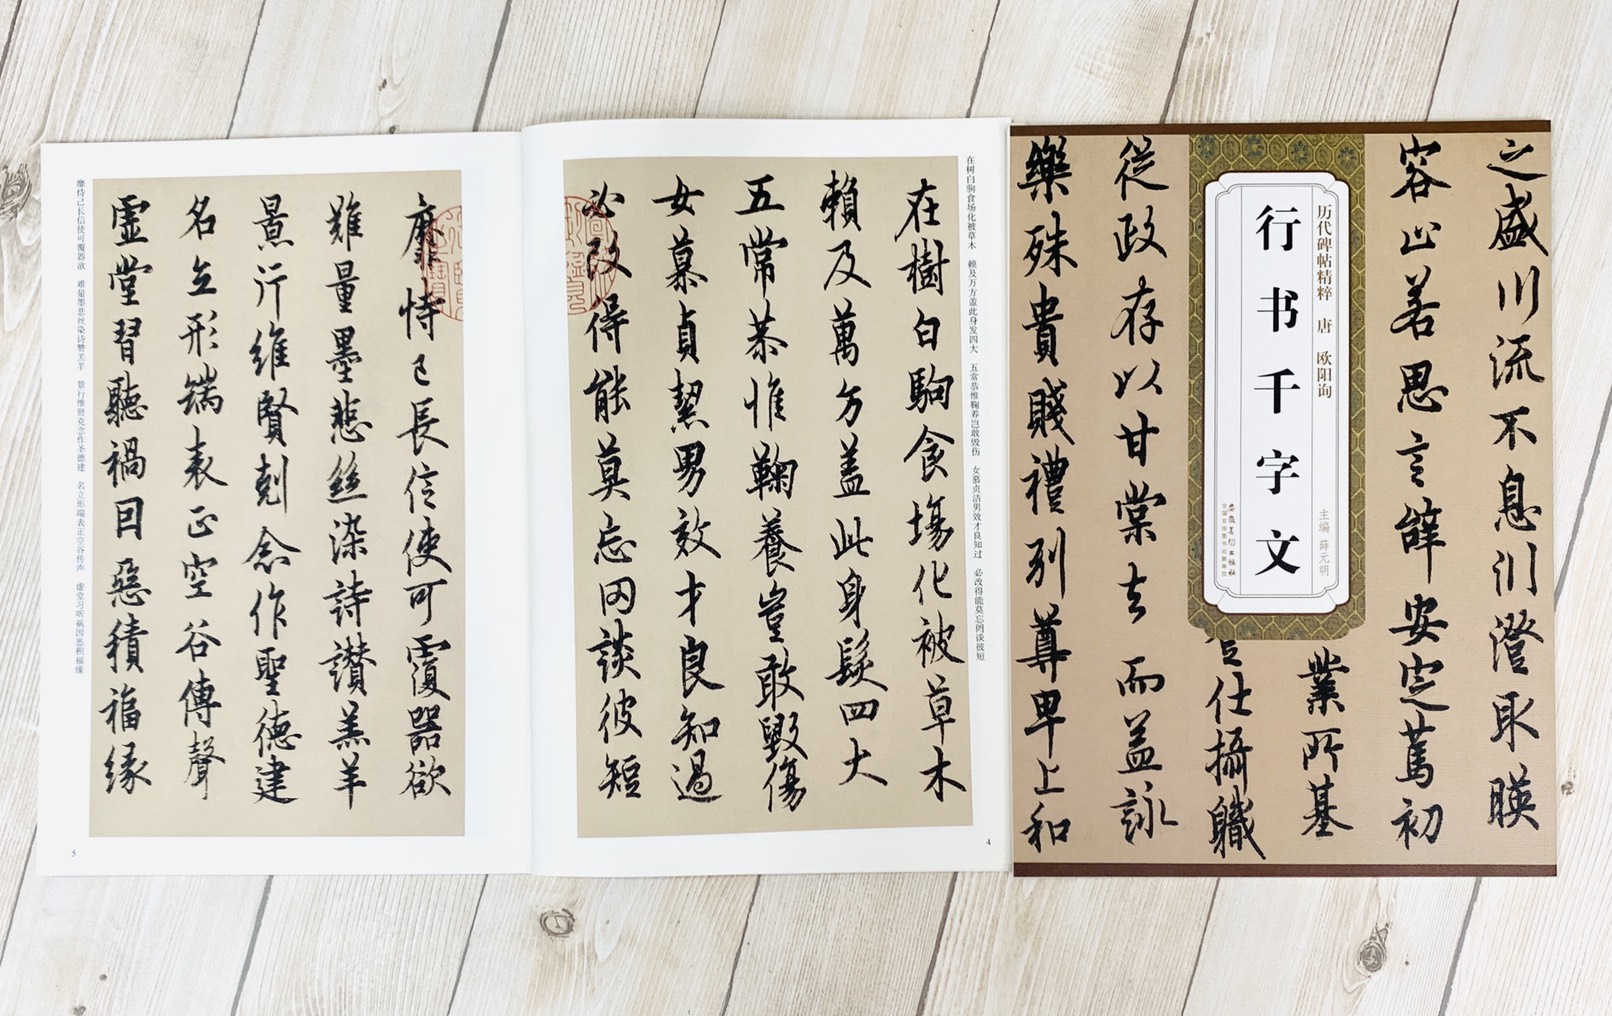 之盛川流不息渊澄取暎
容止若思言辭安定篤初
業所基
登仕攝職
從政存以甘棠去而益詠
樂殊貴賤禮別尊卑上和
历代碑帖精粹 唐 欧阳询
行书千字文
主编 薛元明
安徽美术出版社
全国百佳图书出版单位
在树白驹食场化被草木 赖及万方盖此身发四大 五常恭惟鞠养岂敢毁伤 女慕贞洁男效才良知过 必改得能莫忘罔谈彼短
在樹白駒食場化被草木
賴及萬方盖此身髮四大
五常恭惟鞠養豈敢毀傷
女慕貞絜男效才良知過
必改得能莫忘罔談彼短
4
靡恃己長信使可覆器欲
難量墨悲絲染詩讃羔羊
景行維賢剋念作聖德建
名立形端表正空谷傳聲
虛堂習聽禍因惡積福緣
靡恃己长信使可覆器欲 难量墨悲丝染诗赞羔羊 景行维贤克念作圣德建 名立形端表正空谷传声 虚堂习听祸因恶积福缘
5